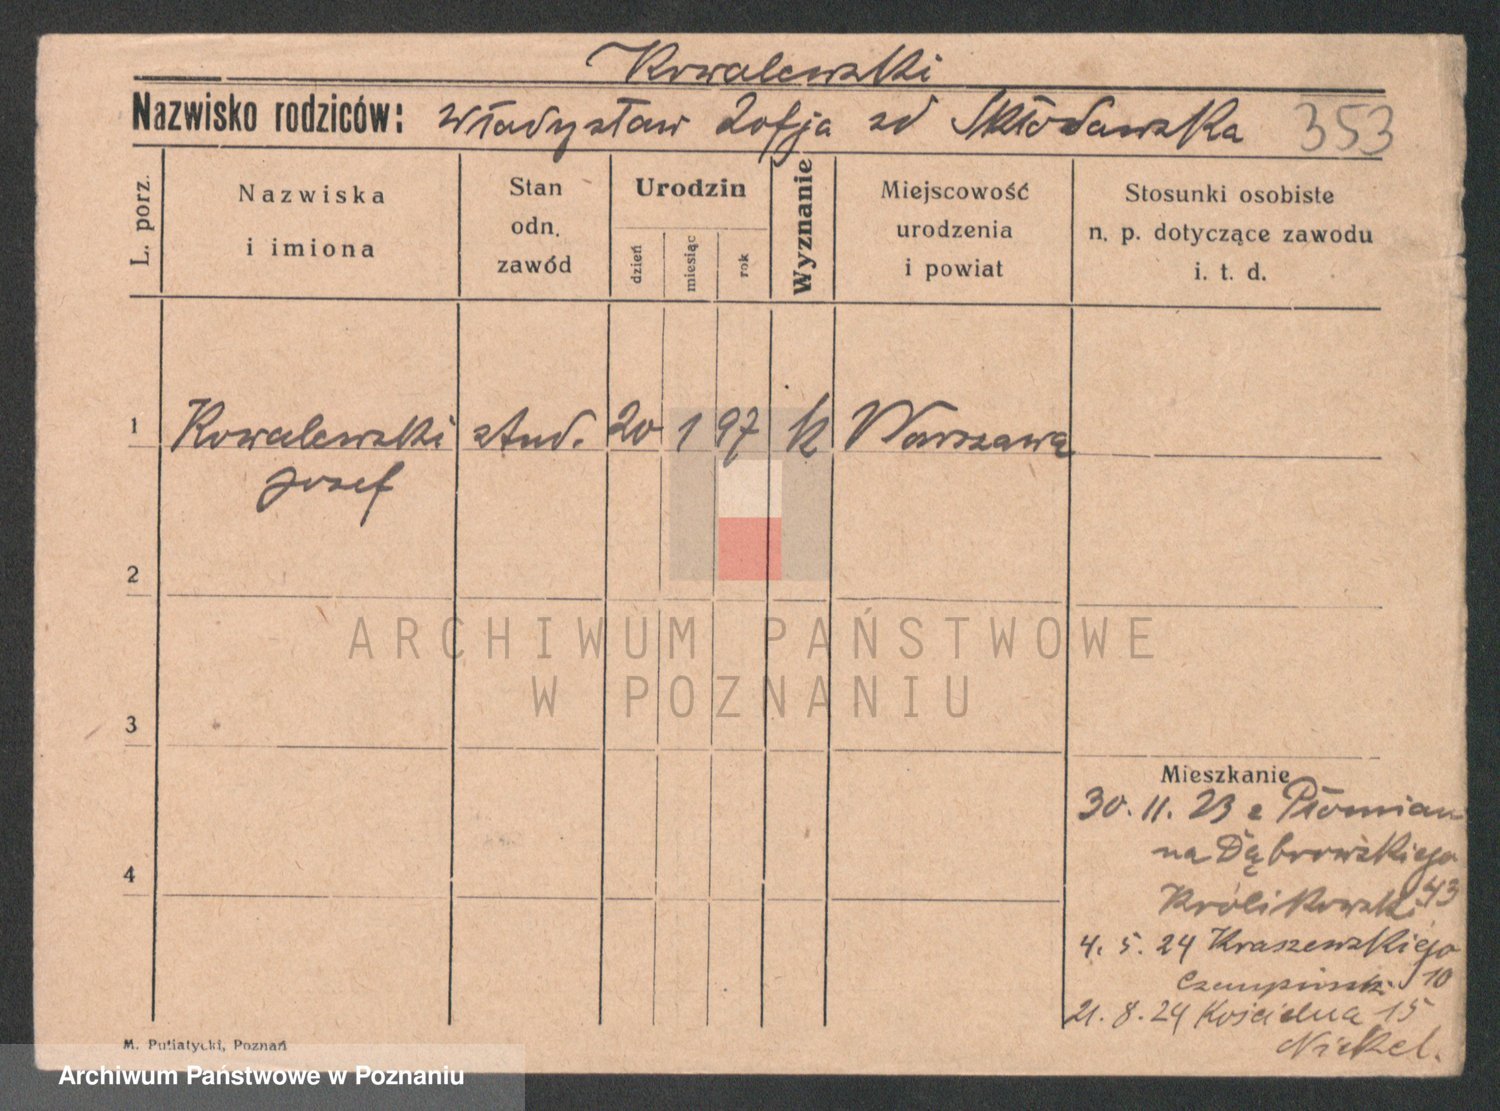 Kowalewski
Nazwisko rodziców: Władysław Zofja zd Skłodawska 353
L. porz.
Nazwiska
i imiona
Stan
odn.
zawód
Urodzin
dzień
miesiąc
rok
Wyznanie
Miejscowość
urodzenia
i powiat
Stosunki osobiste
n. p. dotyczące zawodu
i. t. d.
1 Kowalewski stud. 20 1 97 k Warszawa
Josef
2
3
4
Mieszkanie
30. 11. 23 z Płomian
na Dąbrowskiego
43
Królikowski
4. 5. 24 Kraszewskiego
10
21. 8. 24 Kościelna 15
Nickel.
M. Putiatycki, Poznań
ARCHIWUM PAŃSTWOWE
W POZNANIU
Archiwum Państwowe w Poznaniu